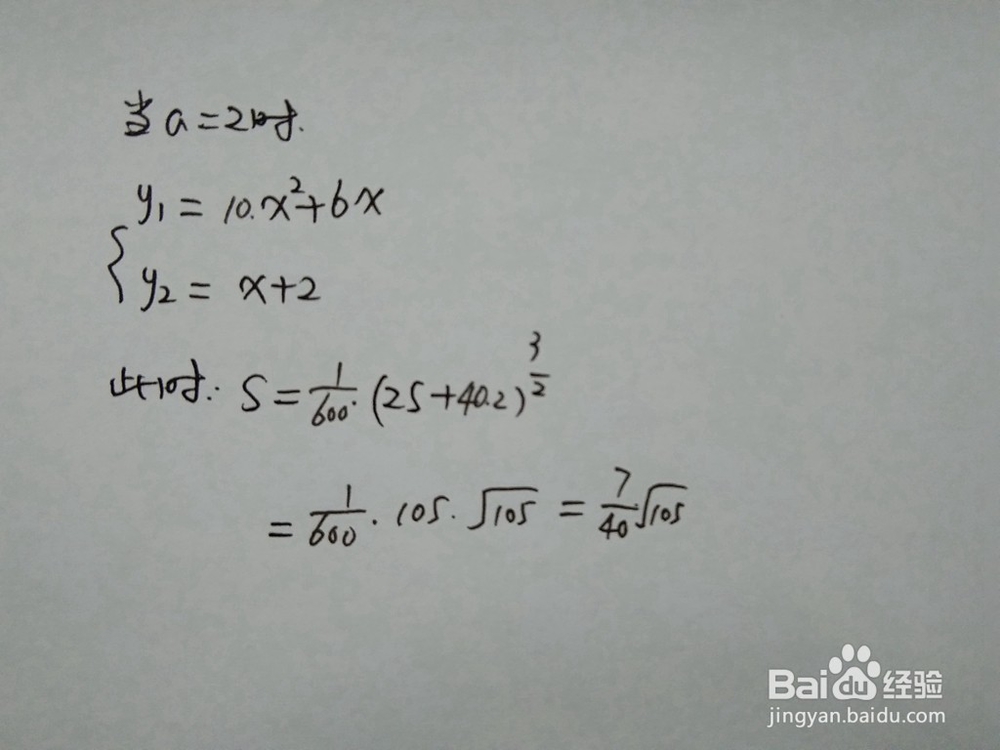 当 a=2时.
y₁ = 10.x²+6x
{
y₂ = x+2
此时: S = 1/600 · (25+40.2)^(3/2)
= 1/600 · 105 · √105 = 7/40 √105
Baidu 经验
jingyan.baidu.com